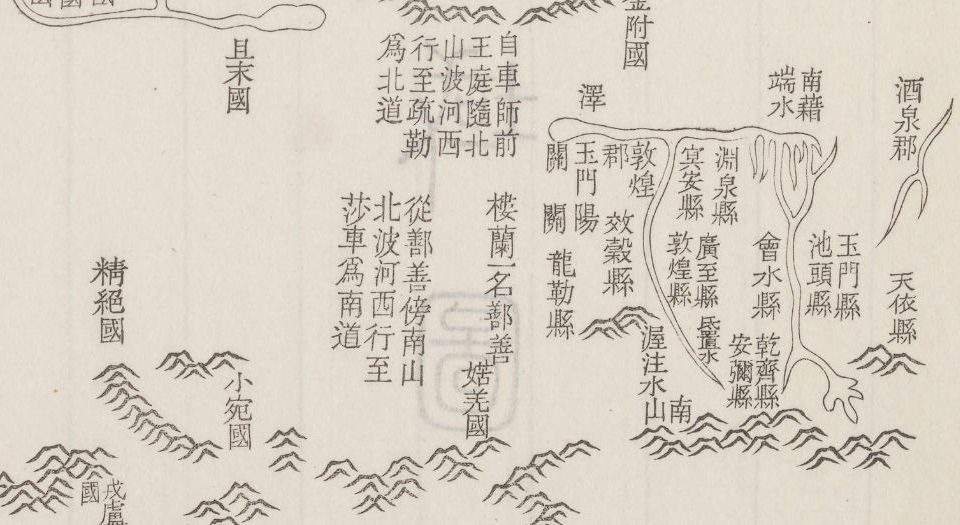 酒泉郡
天依縣
玉門縣
池頭縣
南藉
端水
會水縣
乾齊縣
安彌縣
淵泉縣
冥安縣
廣至縣
敦煌縣
置水
敦煌
郡
效穀縣
渥注水
南山
玉門
關
陽
關
龍勒縣
澤
附國
自車師前
王庭隨北
山波河西
行至疏勒
爲北道
樓蘭一名鄯善
婼羌國
從鄯善傍南山
北波河西行至
莎車爲南道
且末國
精絕國
小宛國
戎盧
國